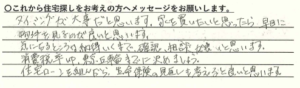 ○これから住宅探しをお考えの方へメッセージをお願いします。
タイミングが大事だと思います。家を買いたいと思ったら早目に
物件を見るのが良いと思います。
気になるところは納得いくまで、確認、相談が良いと思います。
消費税率UP、
住宅ローンを組むなら、生命保険の見直しも考えると良いと思います。